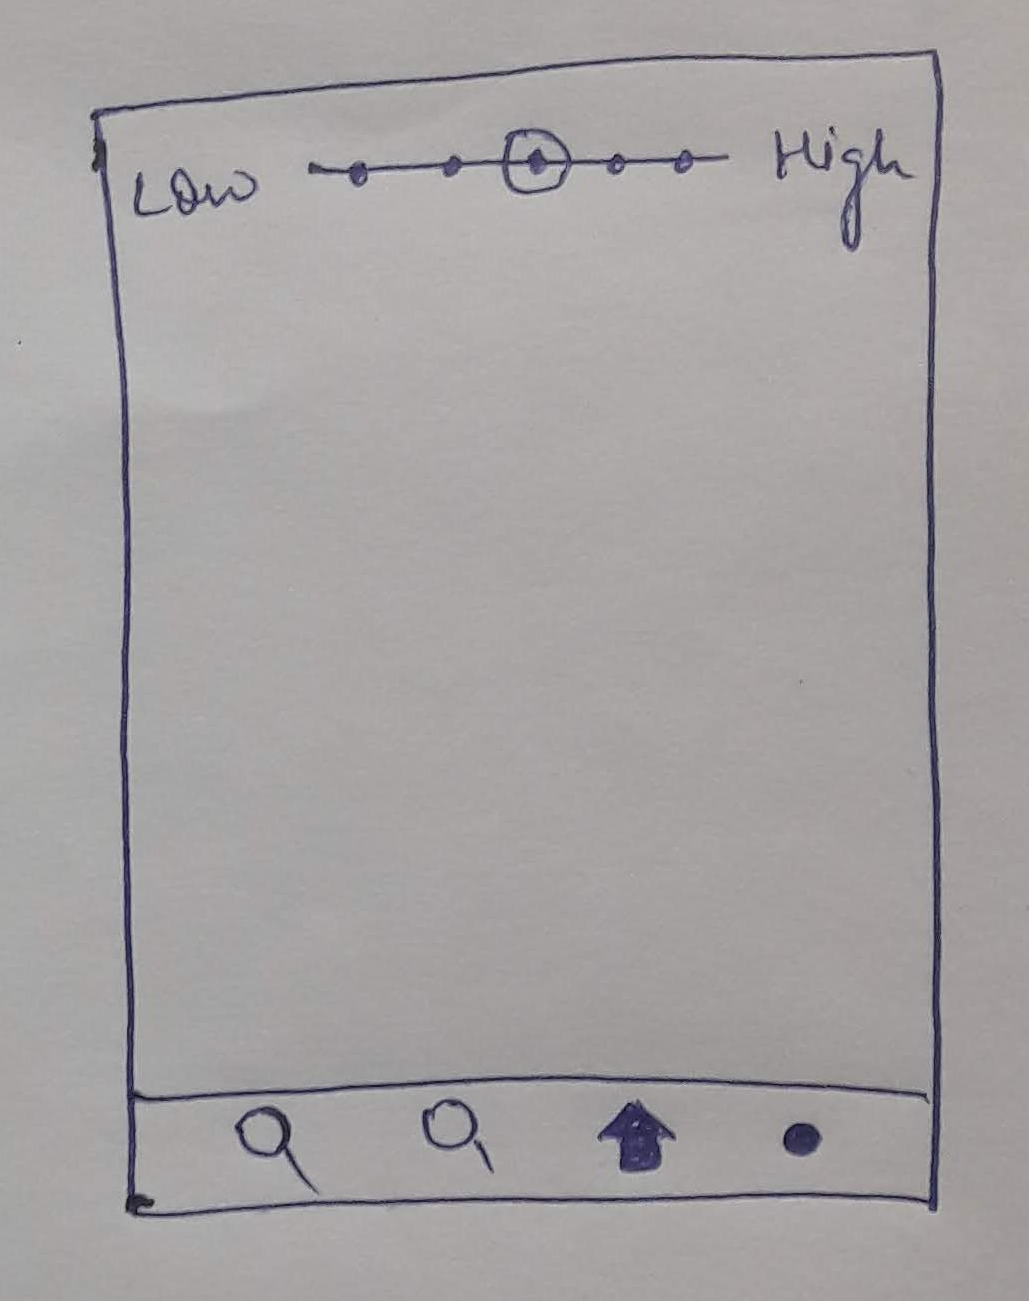 Low High